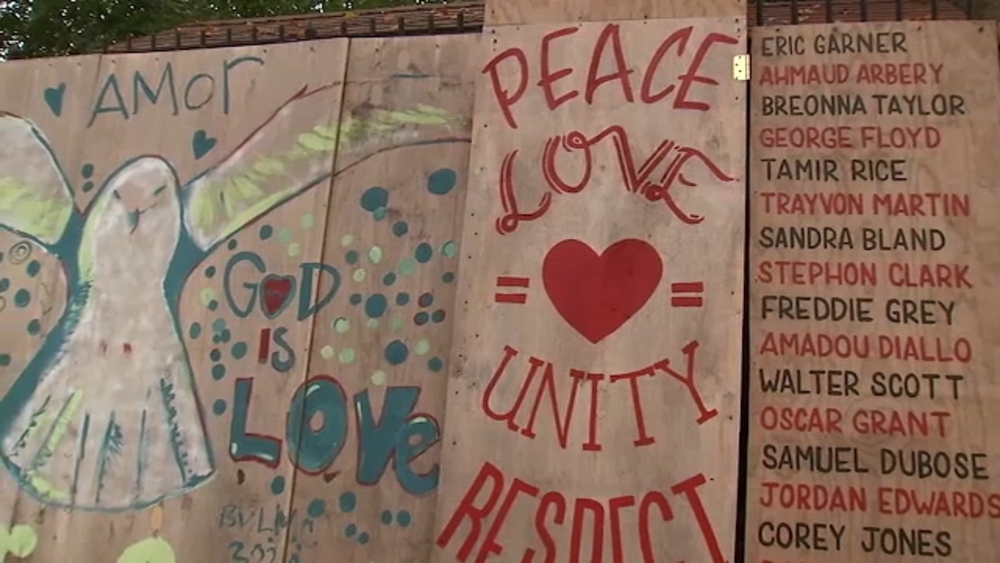 AMOr
GOD
IS
LOVe
PEACE
LOVE
= =
UNITY
RESPECT
ERIC GARNER
AHMAUD ARBERY
BREONNA TAYLOR
GEORGE FLOYD
TAMIR RICE
TRAYVON MARTIN
SANDRA BLAND
STEPHON CLARK
FREDDIE GREY
AMADOU DIALLO
WALTER SCOTT
OSCAR GRANT
SAMUEL DUBOSE
JORDAN EDWARDS
COREY JONES